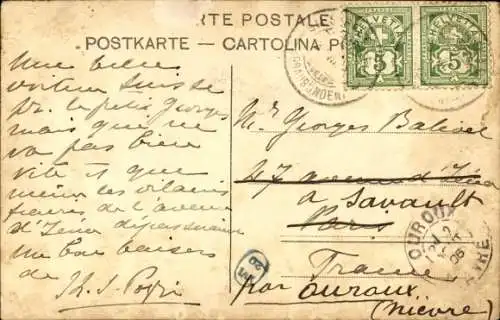 CARTE POSTALE
POSTKARTE – CARTOLINA PO
HELVETIA
5
HELVETIA
5
GRAUBÜNDEN
Une belle
voiture suisse
pr. le petit Georges
mais qui ne
va pas bien
vite et que
les vilains
de l'avenue
d'Iéna
Un bon baiser
de
Mr Georges
47 avenue d'Iéna
a Savault
Paris
France
par Ouroux
(Nièvre)
OUROUX
NIÈVRE